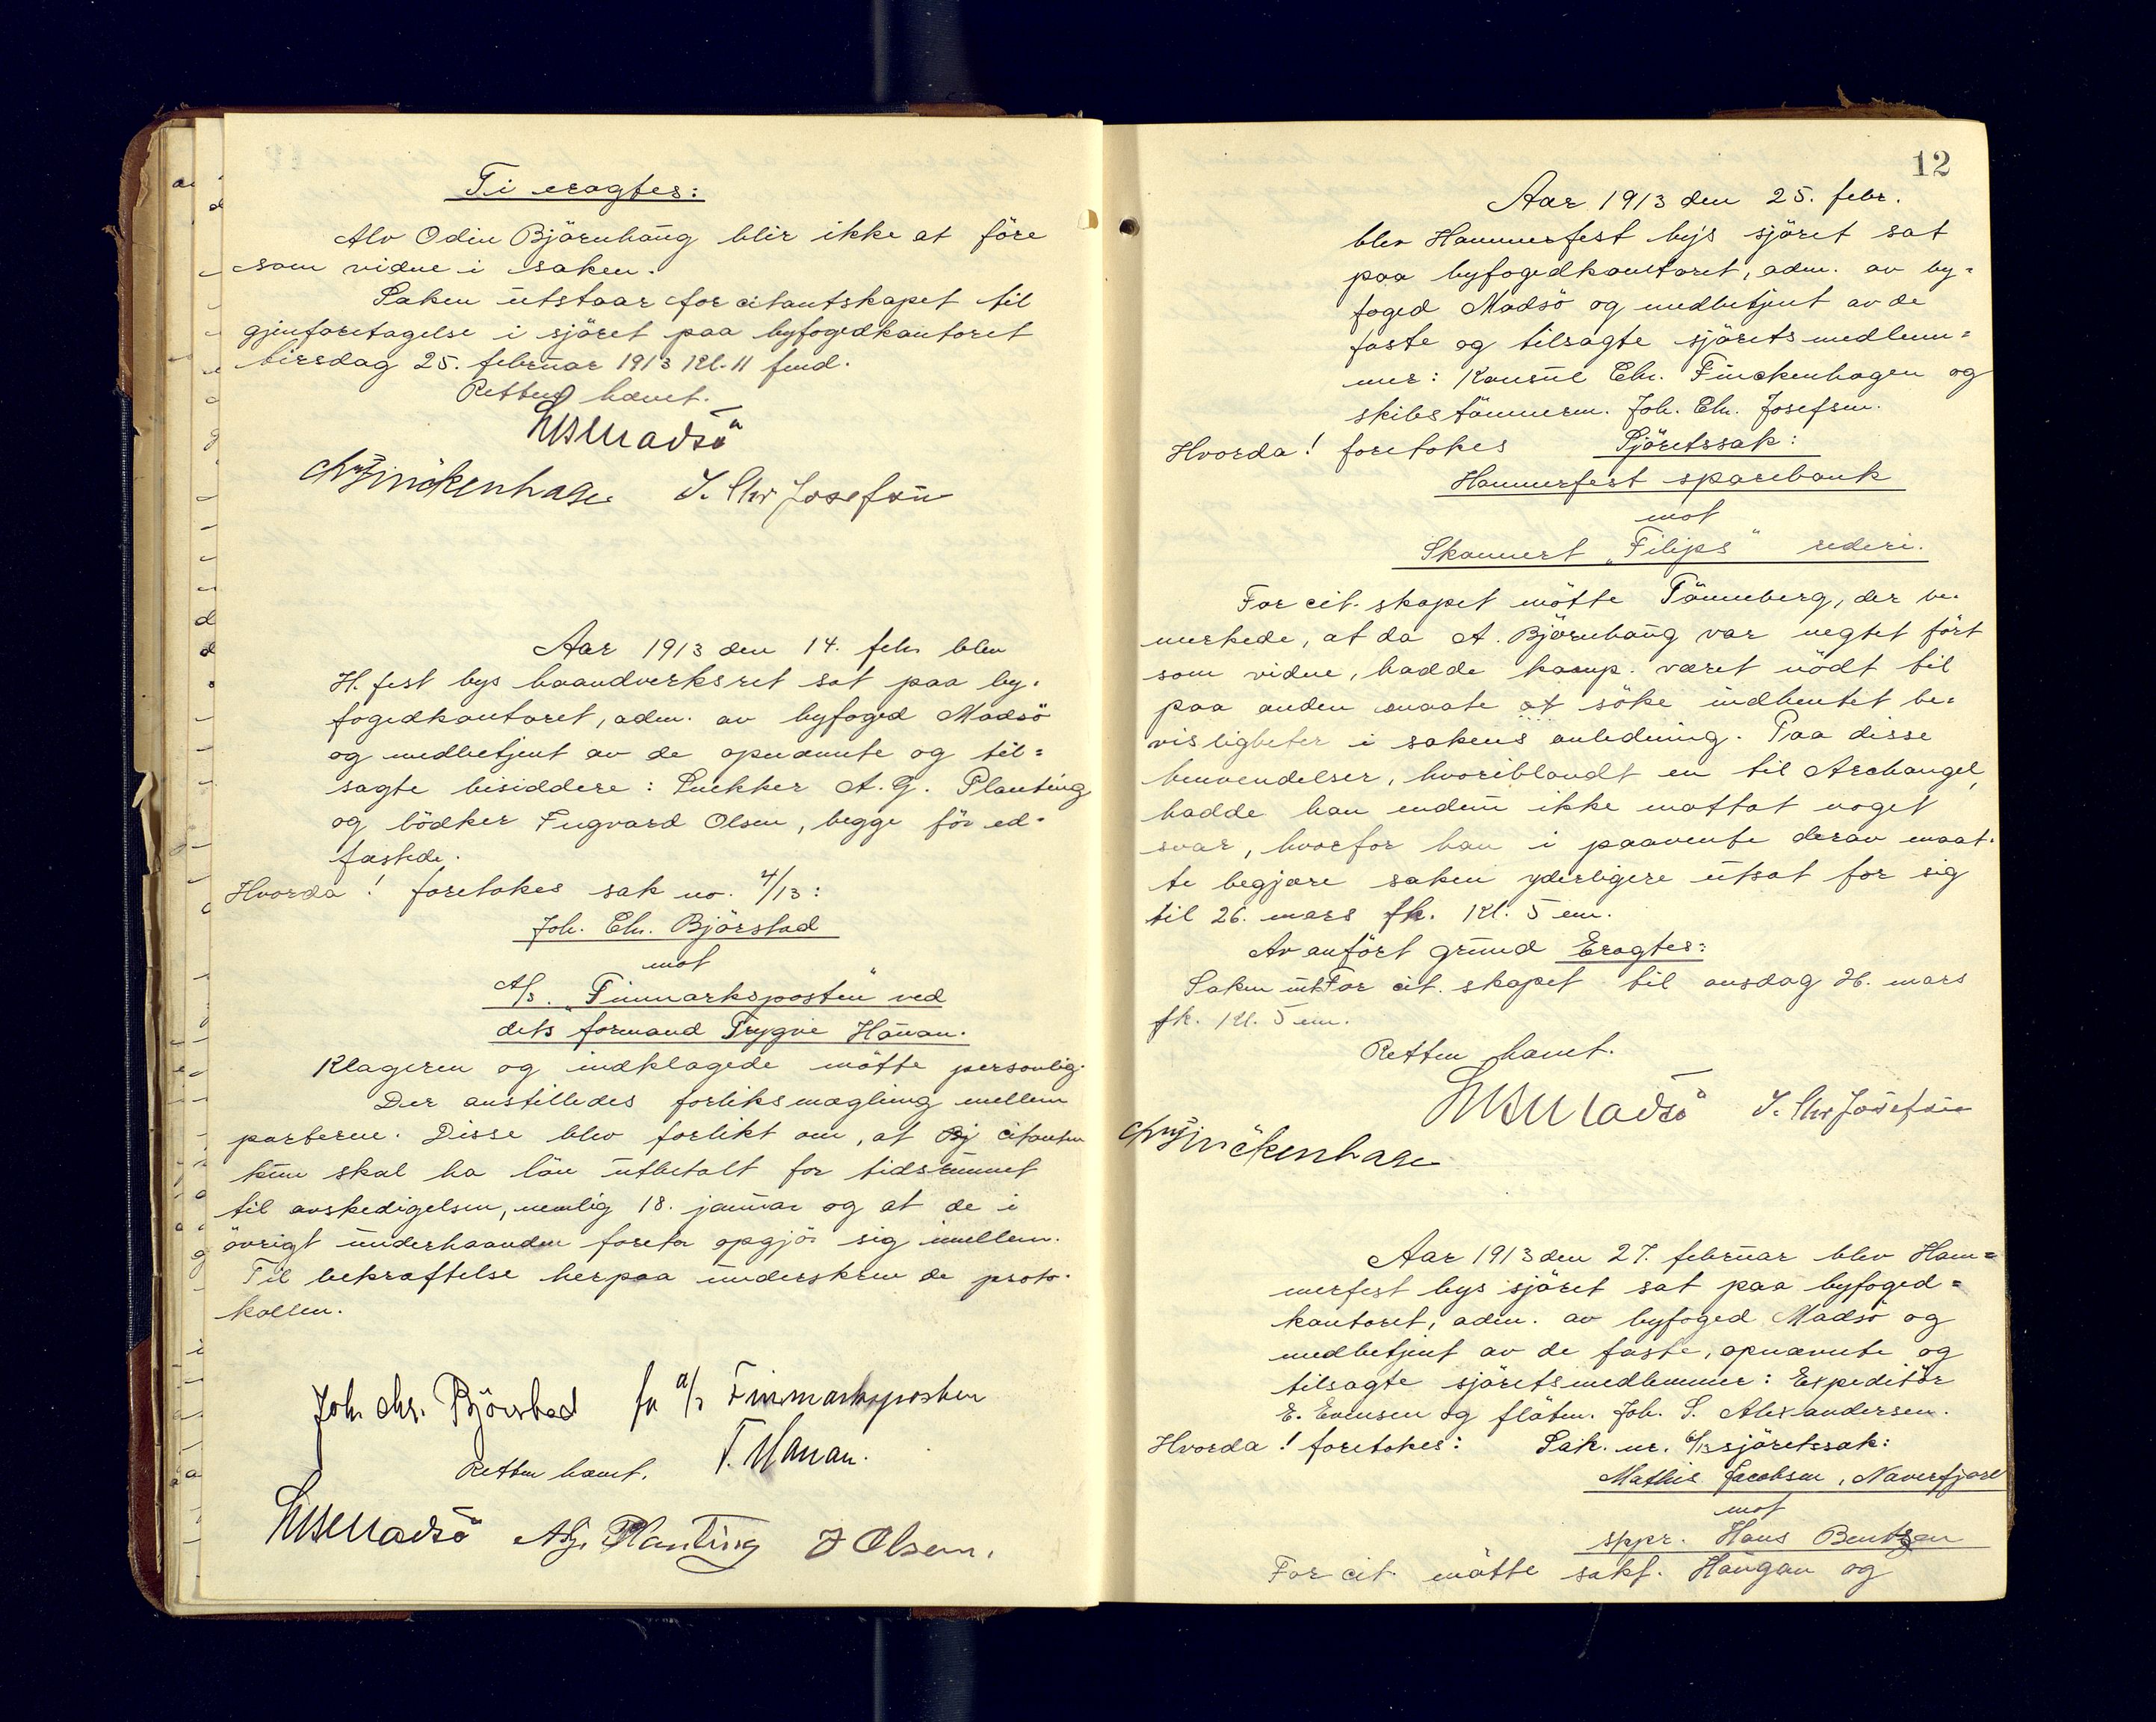 Ti eragtes:
Alv Odin Björnhaug blir ikke at före
som vidne i saken.
Saken utstaar for citantskapet til
gjenforetagelse i sjöret paa byfogedkontoret
tirsdag 25. februar 1913 kl. 11 fmd.
Retten hævet.
Madsö
Chr Finckenhagen J. Chr Josefsen
Aar 1913 den 14. febr blev
H.fest bys haandverksret sat paa by-
fogedkontoret, adm. av byfoged Madsö
og medbetjent av de opnævnte og til-
sagte bisiddere: Snekker A. G. Planting
og bödker Ingvard Olsen, begge för ed-
fæstede.
Hvorda! foretokes sak no. 4/13:
Joh. Chr. Björstad
mot
A/s. "Finmarksposten" ved
dets formand Trygve Hauan.
Klageren og indklagede mötte personlig.
Der anstilledes forliksmægling mellem
parterne. Disse blev forlikt om, at Bj citanten
kun skal ha lön utbetalt for tidsrummet
til avskedigelsen, nemlig 18. januar og at de i
övrigt underhaanden foretar opgjör sig imellem.
Til bekræftelse herpaa underskrev de proto-
kollen.
Joh. Chr. Björstad for a/s Finmarksposten
Retten hævet. T. Hauan.
Madsö A.G. Planting J Olsen.
12
Aar 1913 den 25. febr.
blev Hammerfest bys sjöret sat
paa byfogedkontoret, adm. av by-
foged Madsö og medbetjent av de
faste og tilsagte sjöretsmedlem-
mer: Konsul Chr. Finckenhagen og
skibstömmerm. Joh. Chr. Josefsen.
Hvorda! foretokes Sjöretssak:
Hammerfest sparebank
mot
Skonnert "Filips" rederi.
For cit.skapet mötte Tönneberg, der be-
merkede, at da A. Björnhaug var negtet fört
som vidne, hadde komp. været nödt til
paa anden maate at söke indhentet be-
visligheter i sakens anledning. Paa disse
henvendelser, hvoriblandt en til Archangel,
hadde han endnu ikke mottat noget
svar, hvorfor han i paavente derav maat-
te begjære saken yderligere utsat for sig
til 26. mars fk. kl. 5 em.
Av anfört grund Eragtes:
Saken uts for cit.skapet til onsdag 26. mars
fk. kl. 5 em.
Retten hævet.
Madsö J. Chr Josefsen
Chr Finckenhagen
Aar 1913 den 27. februar blev Ham-
merfest bys sjöret sat paa byfoged-
kontoret, adm. av byfoged Madsö og
medbetjent av de faste, opnævnte og
tilsagte sjöretsmedlemmer: Expeditör
E. Evensen og flötm. Joh. S. Alexandersen.
Hvorda! foretokes: Sak. nr. 6/13 sjöretssak:
Mathis Jacobsen, Naverfjord
mot
sppr. Hans Bentzen
For cit. mötte sakf. Haugan og